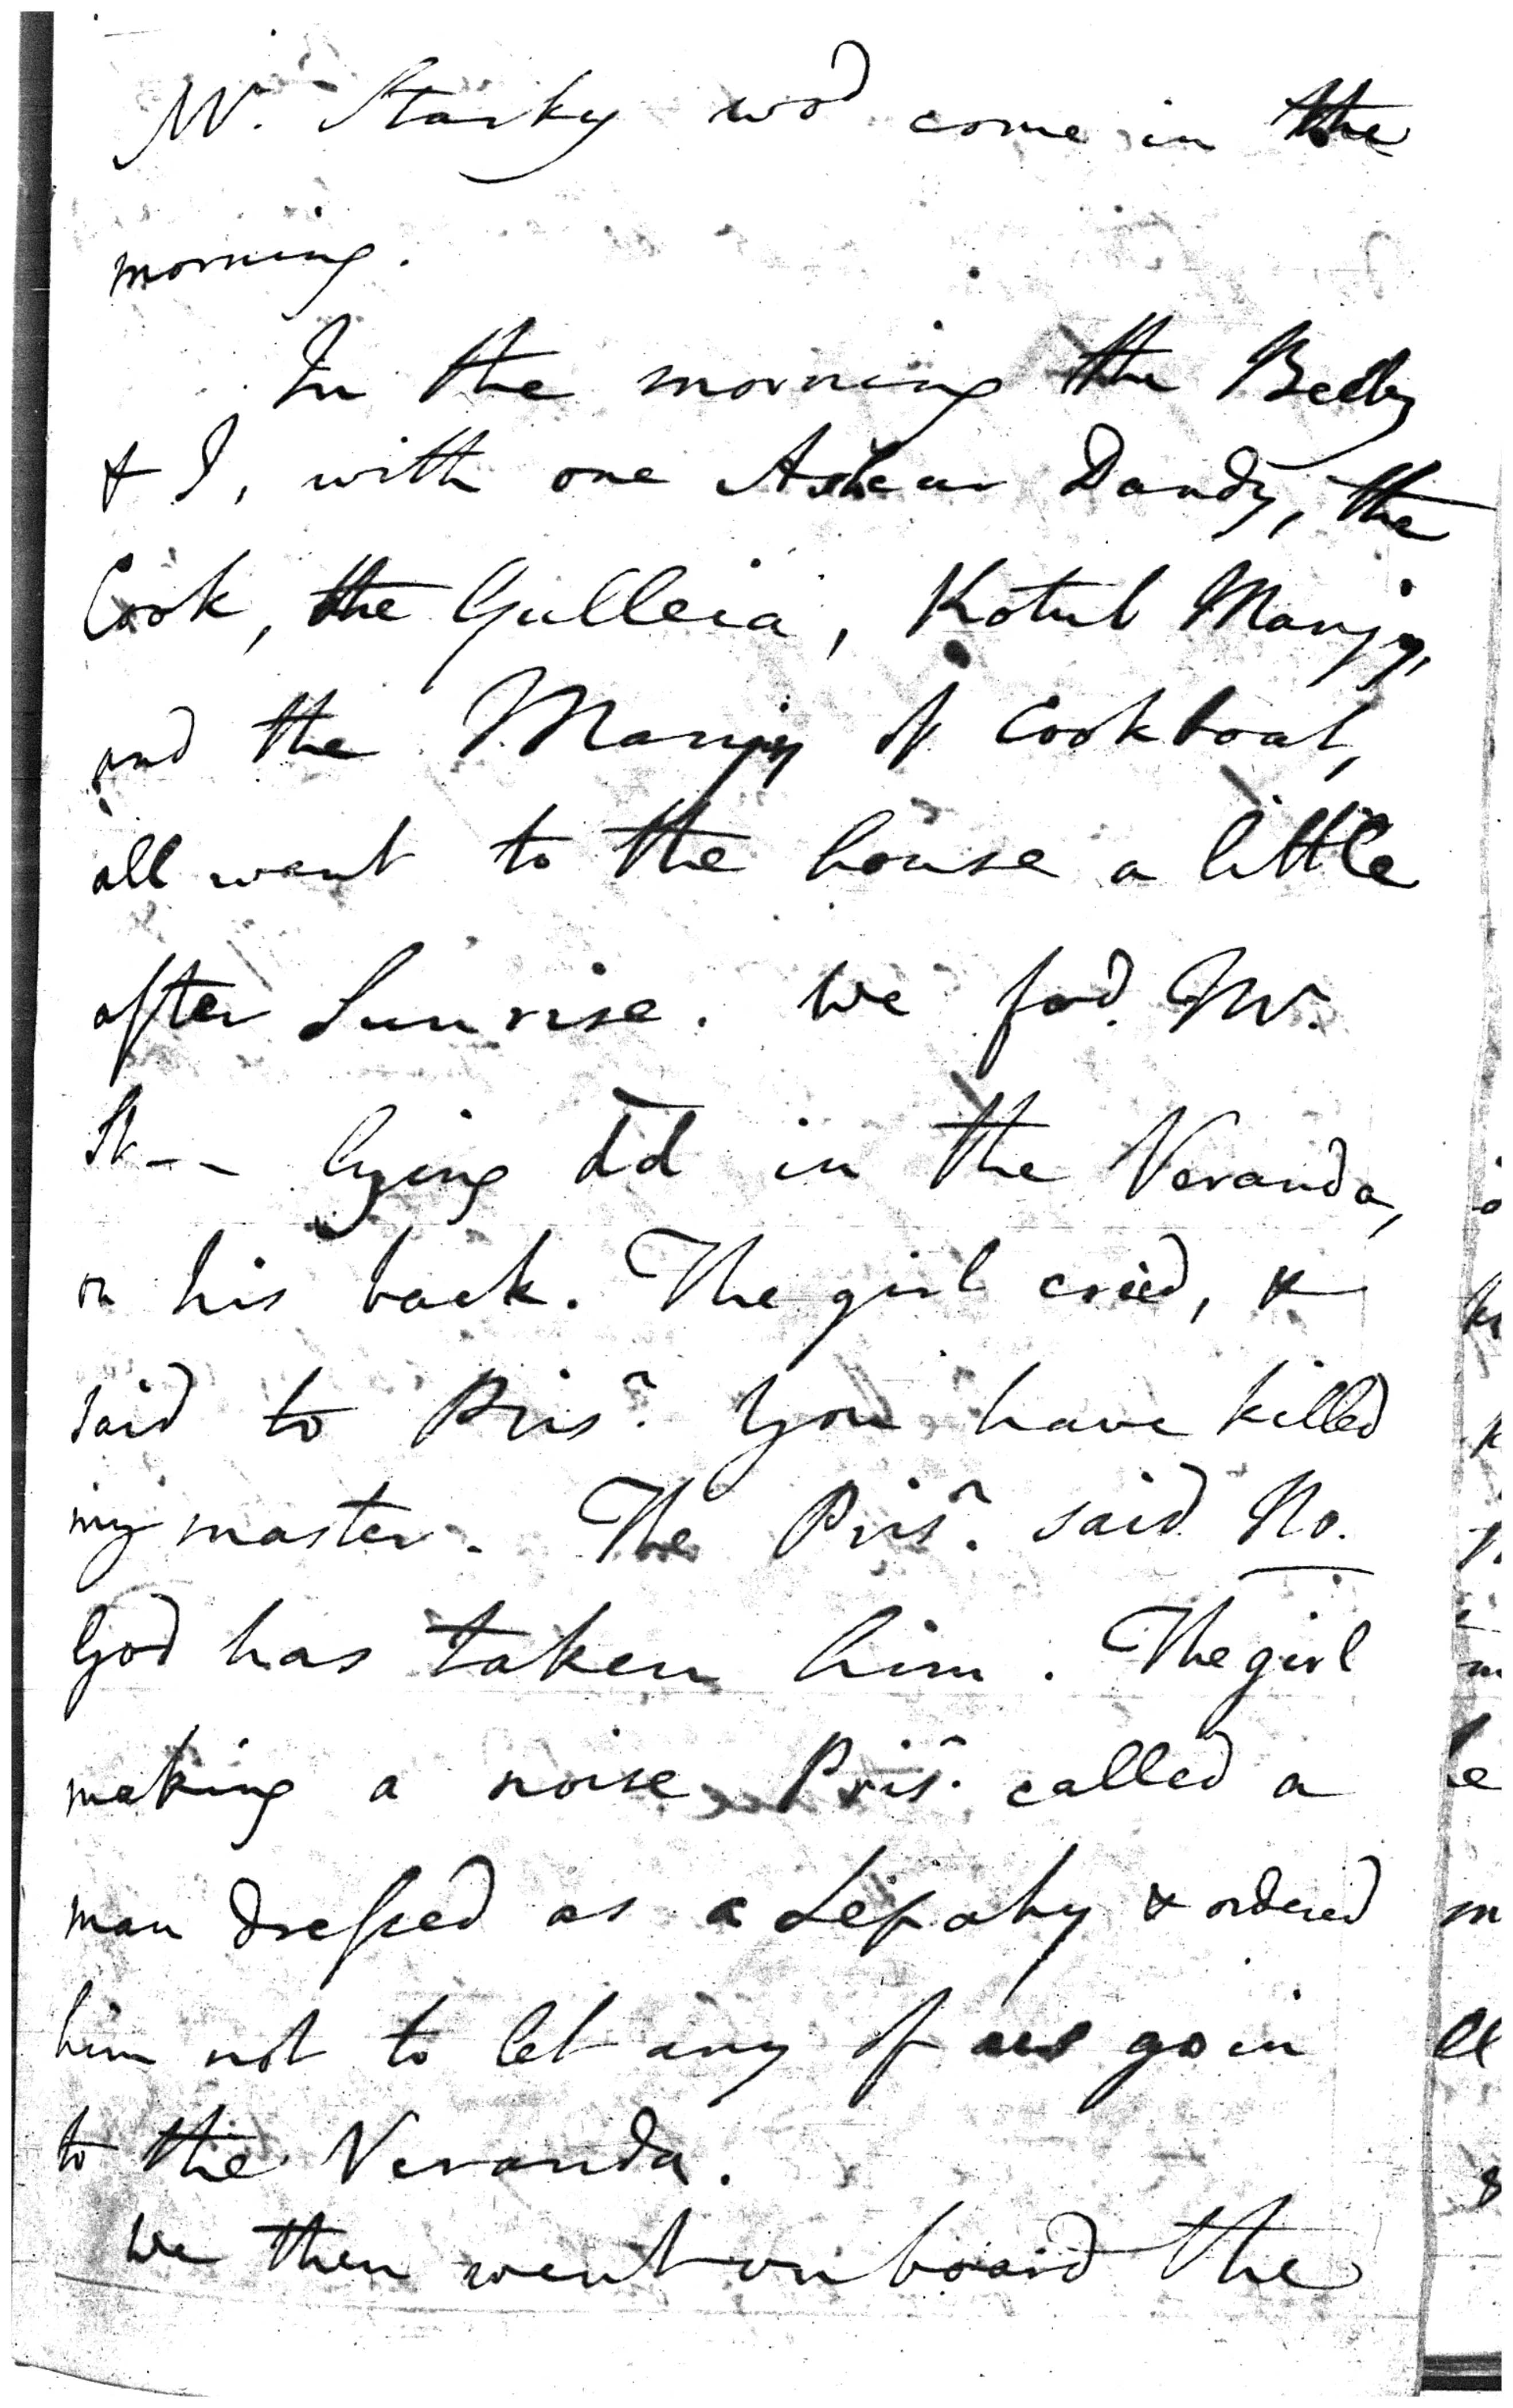 Mr. Starky wod come in the
morning.
In the morning the Beeby
& I, with one Askar Dandy, the
Cook, the Gulleia, Kotub Manjy,
and the Manjy of Cookboat,
all went to the house a little
after Sunrise. We fod. Mr.
St-- lying d̄d in the Veranda,
on his back. The girl cried, &
said to Prisr. You have killed
my master. The Prisr. said No.
God has taken him. The girl
making a noise Prisr. called a
man dressed as a Sepahy & ordered
him not to let any of us go in
to the Veranda.
We then went on board the